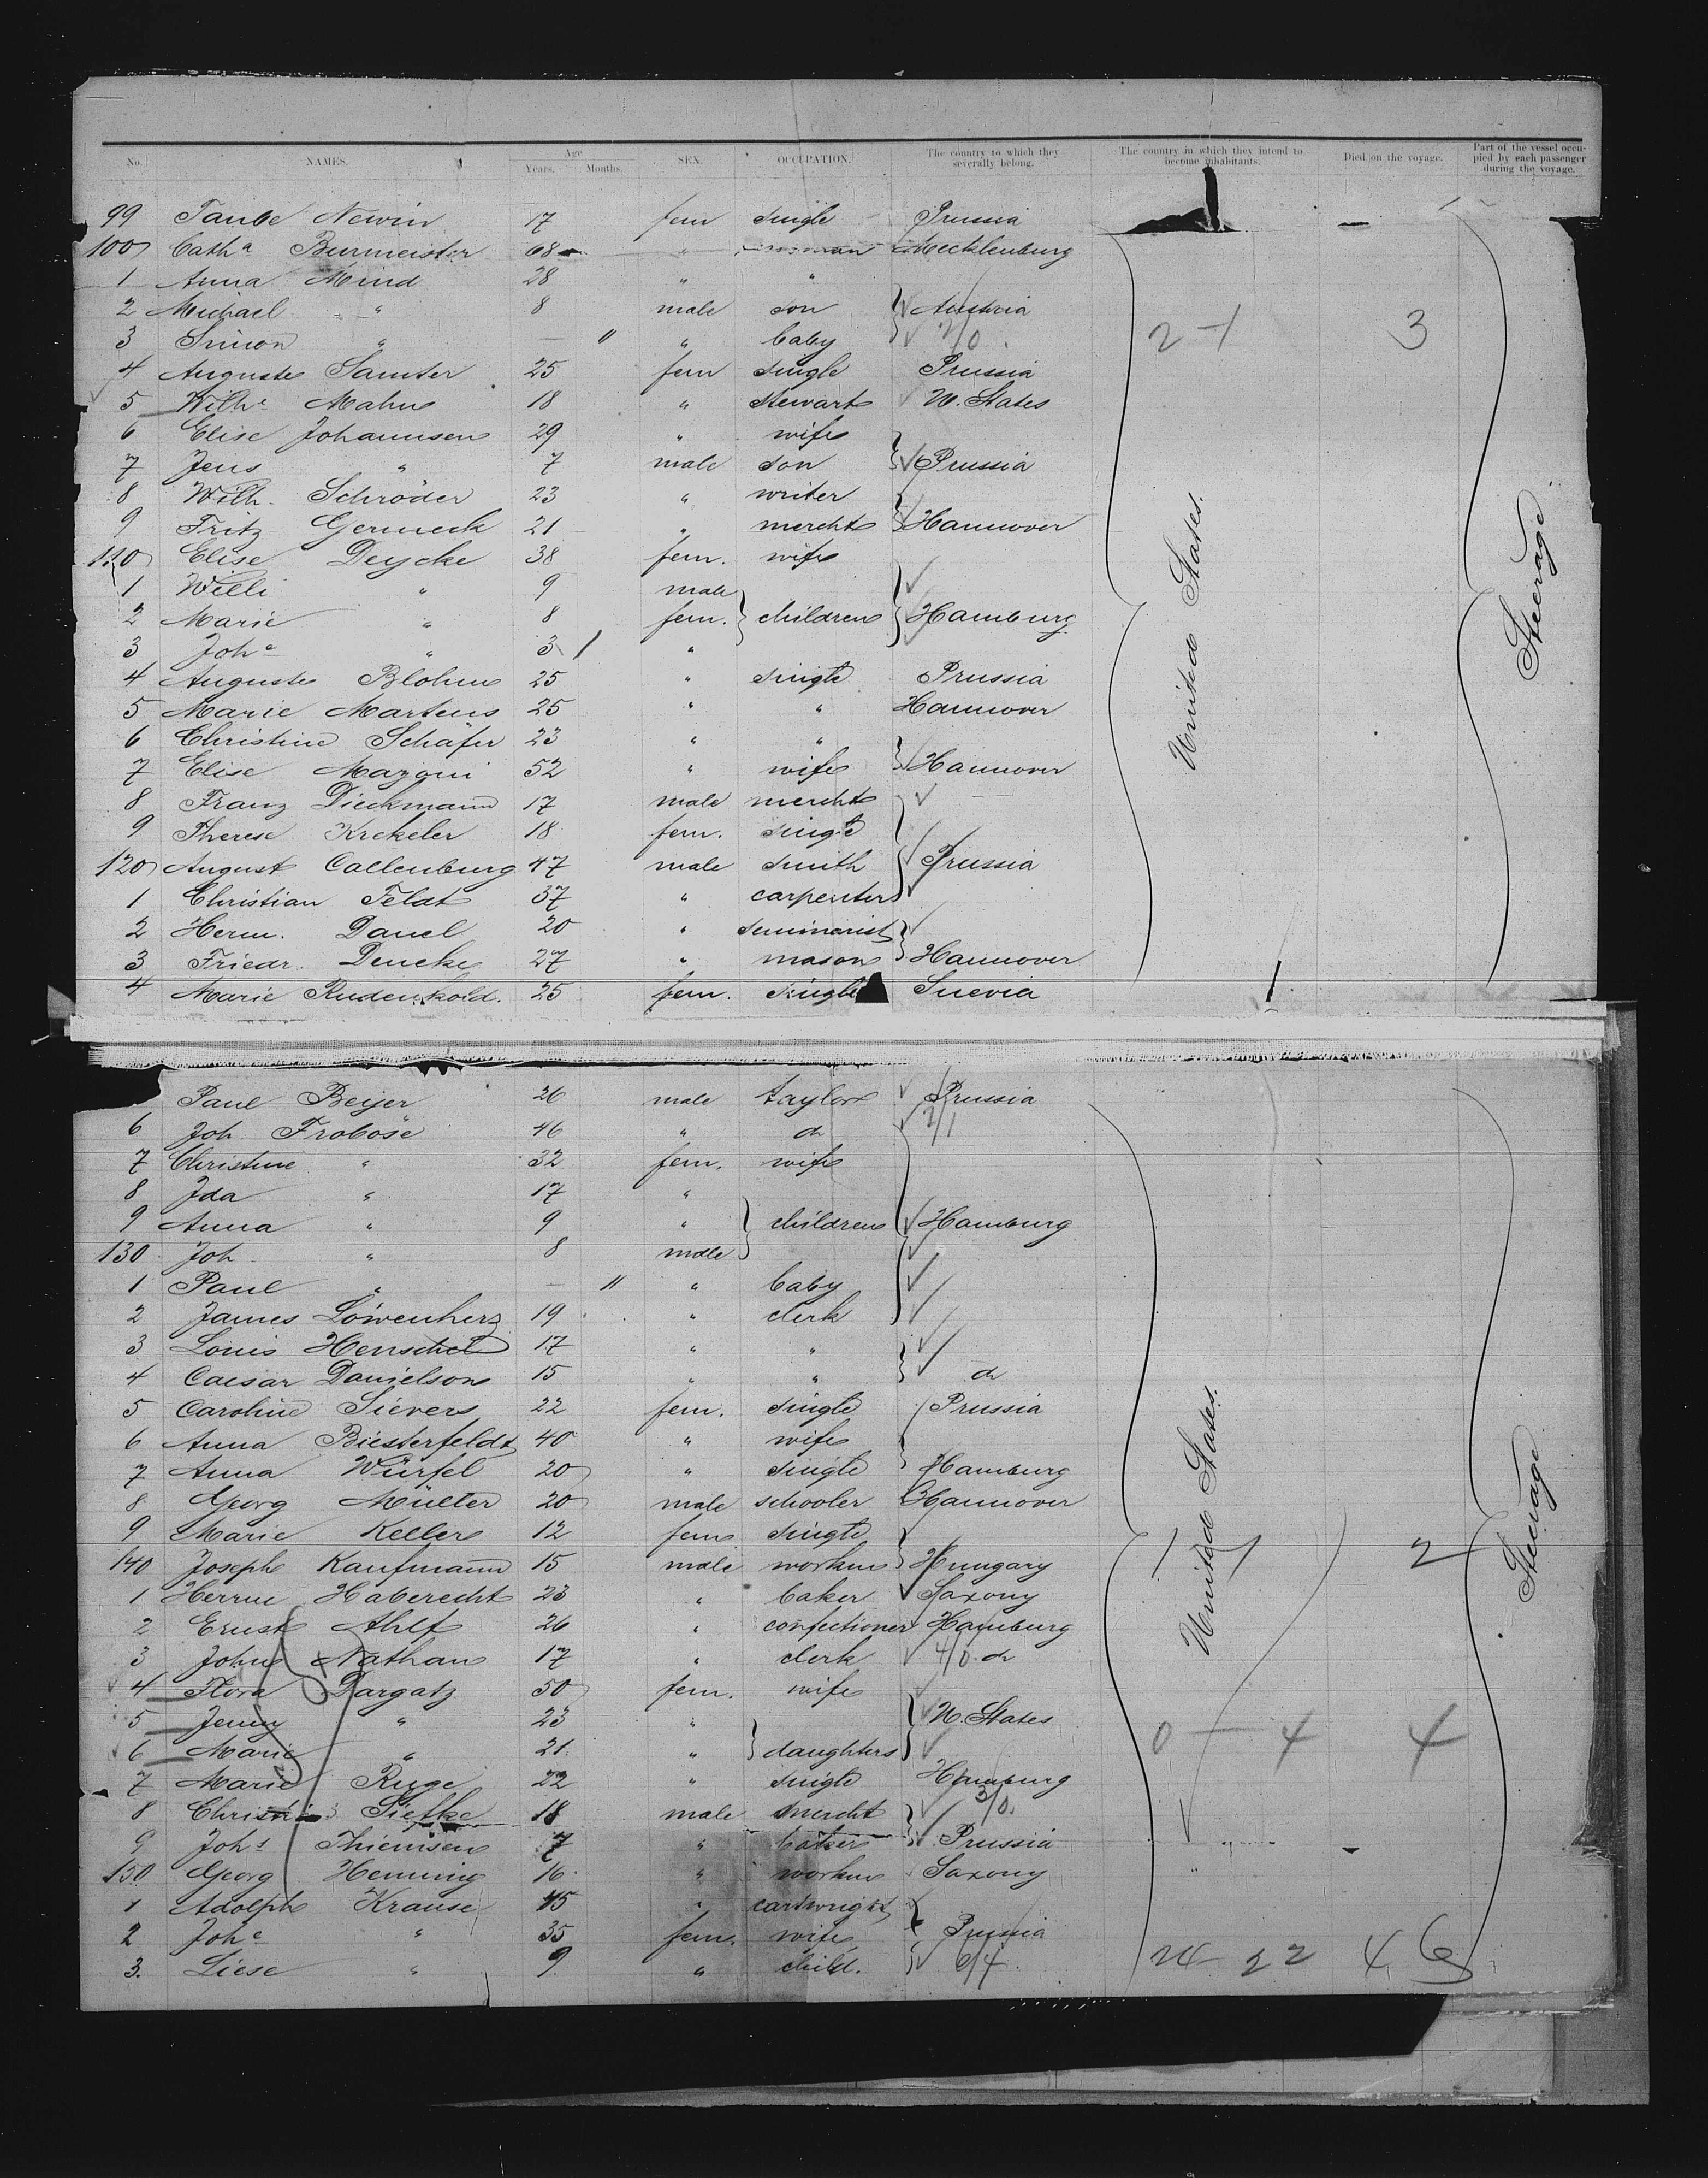 No. NAMES. Age Years. Months. SEX. OCCUPATION. The country to which they severally belong. The country in which they intend to become inhabitants. Died on the voyage. Part of the vessel occupied by each passenger during the voyage.
99 Taube Newin 17 fem single Prussia
100 Cath.a Burmeister 68 " woman Mecklenburg
1 Anna Mind 28 " "
2 Michael " 8 male son Austria
3 Simon " — 11 " baby 2/0 2 - 1 3
4 Auguste Samter 25 fem single Prussia
5 Wilh.e Mahn 18 " stewart U. States
6 Elise Johannsen 29 " wife
7 Jens " 7 male son Prussia
8 Wilh. Schröder 23 " writer
9 Fritz Germeck 21 " mercht Hannover
110 Elise Deycke 38 fem. wife
1 Willi " 9 male
2 Marie " 8 fem. children Hamburg
3 Joh.e " 3 "
4 Auguste Blohm 25 " single Prussia
5 Marie Martens 25 " " Hannover
6 Christine Schäfer 23 " "
7 Elise Mazoni 52 " wife Hannover
8 Franz Dieckmann 17 male mercht
9 Therese Krekeler 18 fem. single
120 August Callenburg 47 male smith Prussia
1 Christian Feldt 37 " carpenter
2 Herm. Danel 20 " seminarist
3 Friedr. Dencke 27 " mason Hannover
4 Marie Rudenskold. 25 fem. single Suevia
United States.
Steerage.
Paul Beyer 26 male taylor Prussia
6 Joh Froböse 46 " do 2/1
7 Christine " 32 fem. wife
8 Ida " 17 "
9 Anna " 9 " children Hamburg
130 Joh " 8 male
1 Paul " — 11 " baby
2 James Löwenherz 19 " clerk
3 Louis Henschel 17 " "
4 Caesar Danielson 15 " " do
5 Caroline Sievers 22 fem. single Prussia
6 Anna Biesterfeldt 40 " wife
7 Anna Würfel 20 " single Hamburg
8 Georg Müller 20 male schooler Hannover
9 Marie Keller 12 fem single
140 Joseph Kaufmann 15 male workm Hungary 1 - 1 2
1 Herrm Haberecht 23 " baker Saxony
2 Ernst Ahlf 26 " confectioner Hamburg
3 John Nathan 17 " clerk 4/0 do
4 Flora Dargatz 50 fem. wife
5 Jenny " 23 " U. States 0 - 4 4
6 Marie " 21 " daughters
7 Marie Ruge 22 " single Hamburg
8 Christ Siefke 18 male mercht 3/0
9 Joh.s Thiemsen 17 " baker Prussia
150 Georg Henning 16 " workm Saxony
1 Adolph Krause 45 " cartwright
2 Joh.e " 35 fem. wife Prussia
3. Liese " 9 " child. 6/4 24 - 22 46
United States.
Steerage